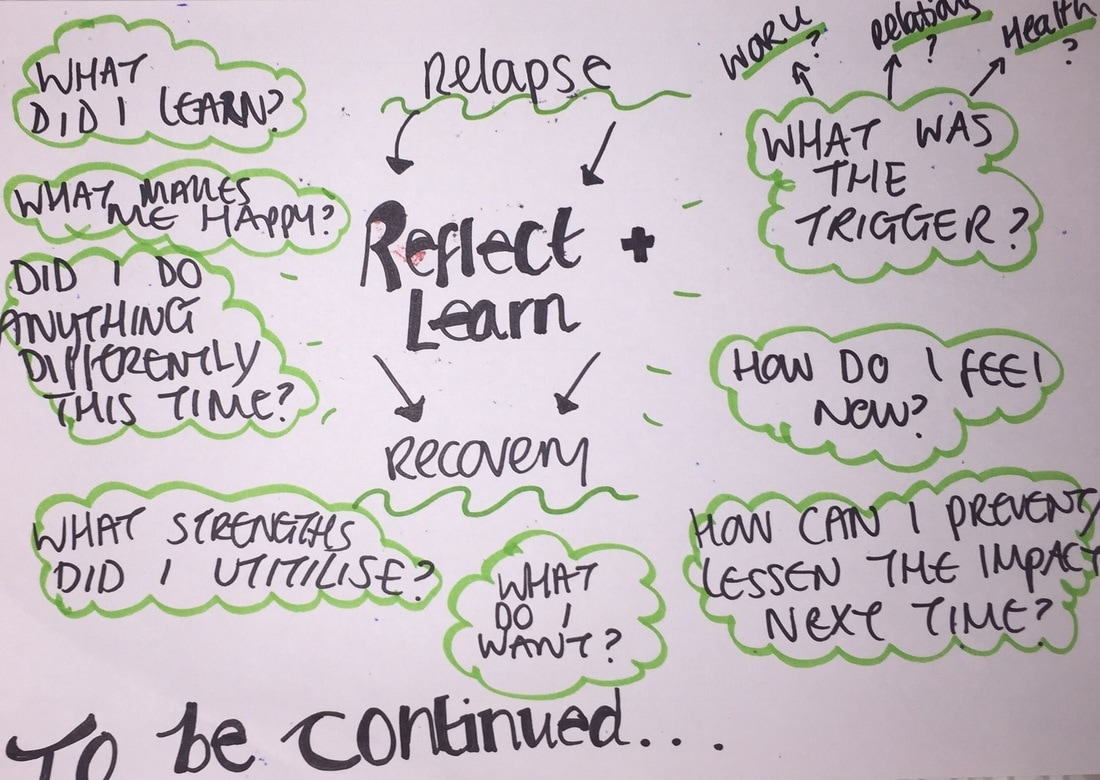 WHAT
DID I LEARN?
WHAT MAKES
ME HAPPY?
DID I DO
ANYTHING
DIFFERENTLY
THIS TIME?
Relapse
Reflect +
Learn
Recovery
Work
?
Relations
?
Health
?
WHAT WAS
THE
TRIGGER?
HOW DO I FEEL
NOW?
WHAT STRENGTHS
DID I UTITILISE?
WHAT
DO I
WANT?
HOW CAN I PREVENT/
LESSEN THE IMPACT
NEXT TIME?
To be continued...